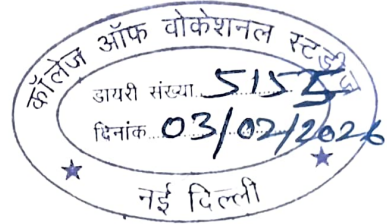 कॉलेज ऑफ वोकेशनल स्टडीज
डायरी संख्या 5155
दिनांक 03/02/2026
नई दिल्ली